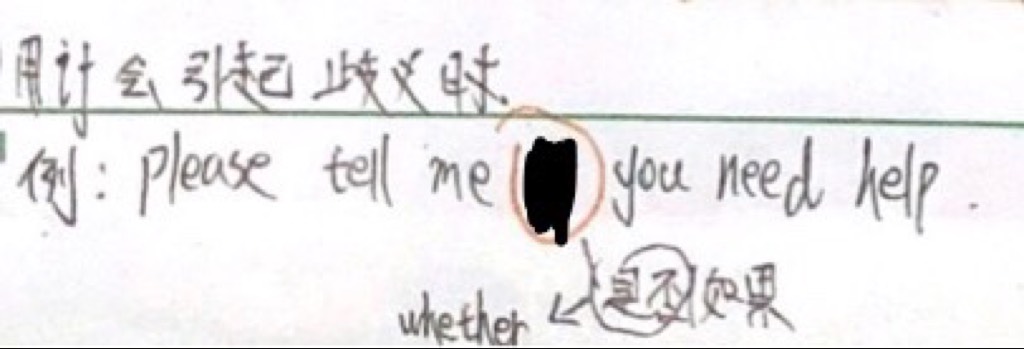 用if会引起歧义时.
例: please tell me you need help.
whether ← 是否 如果